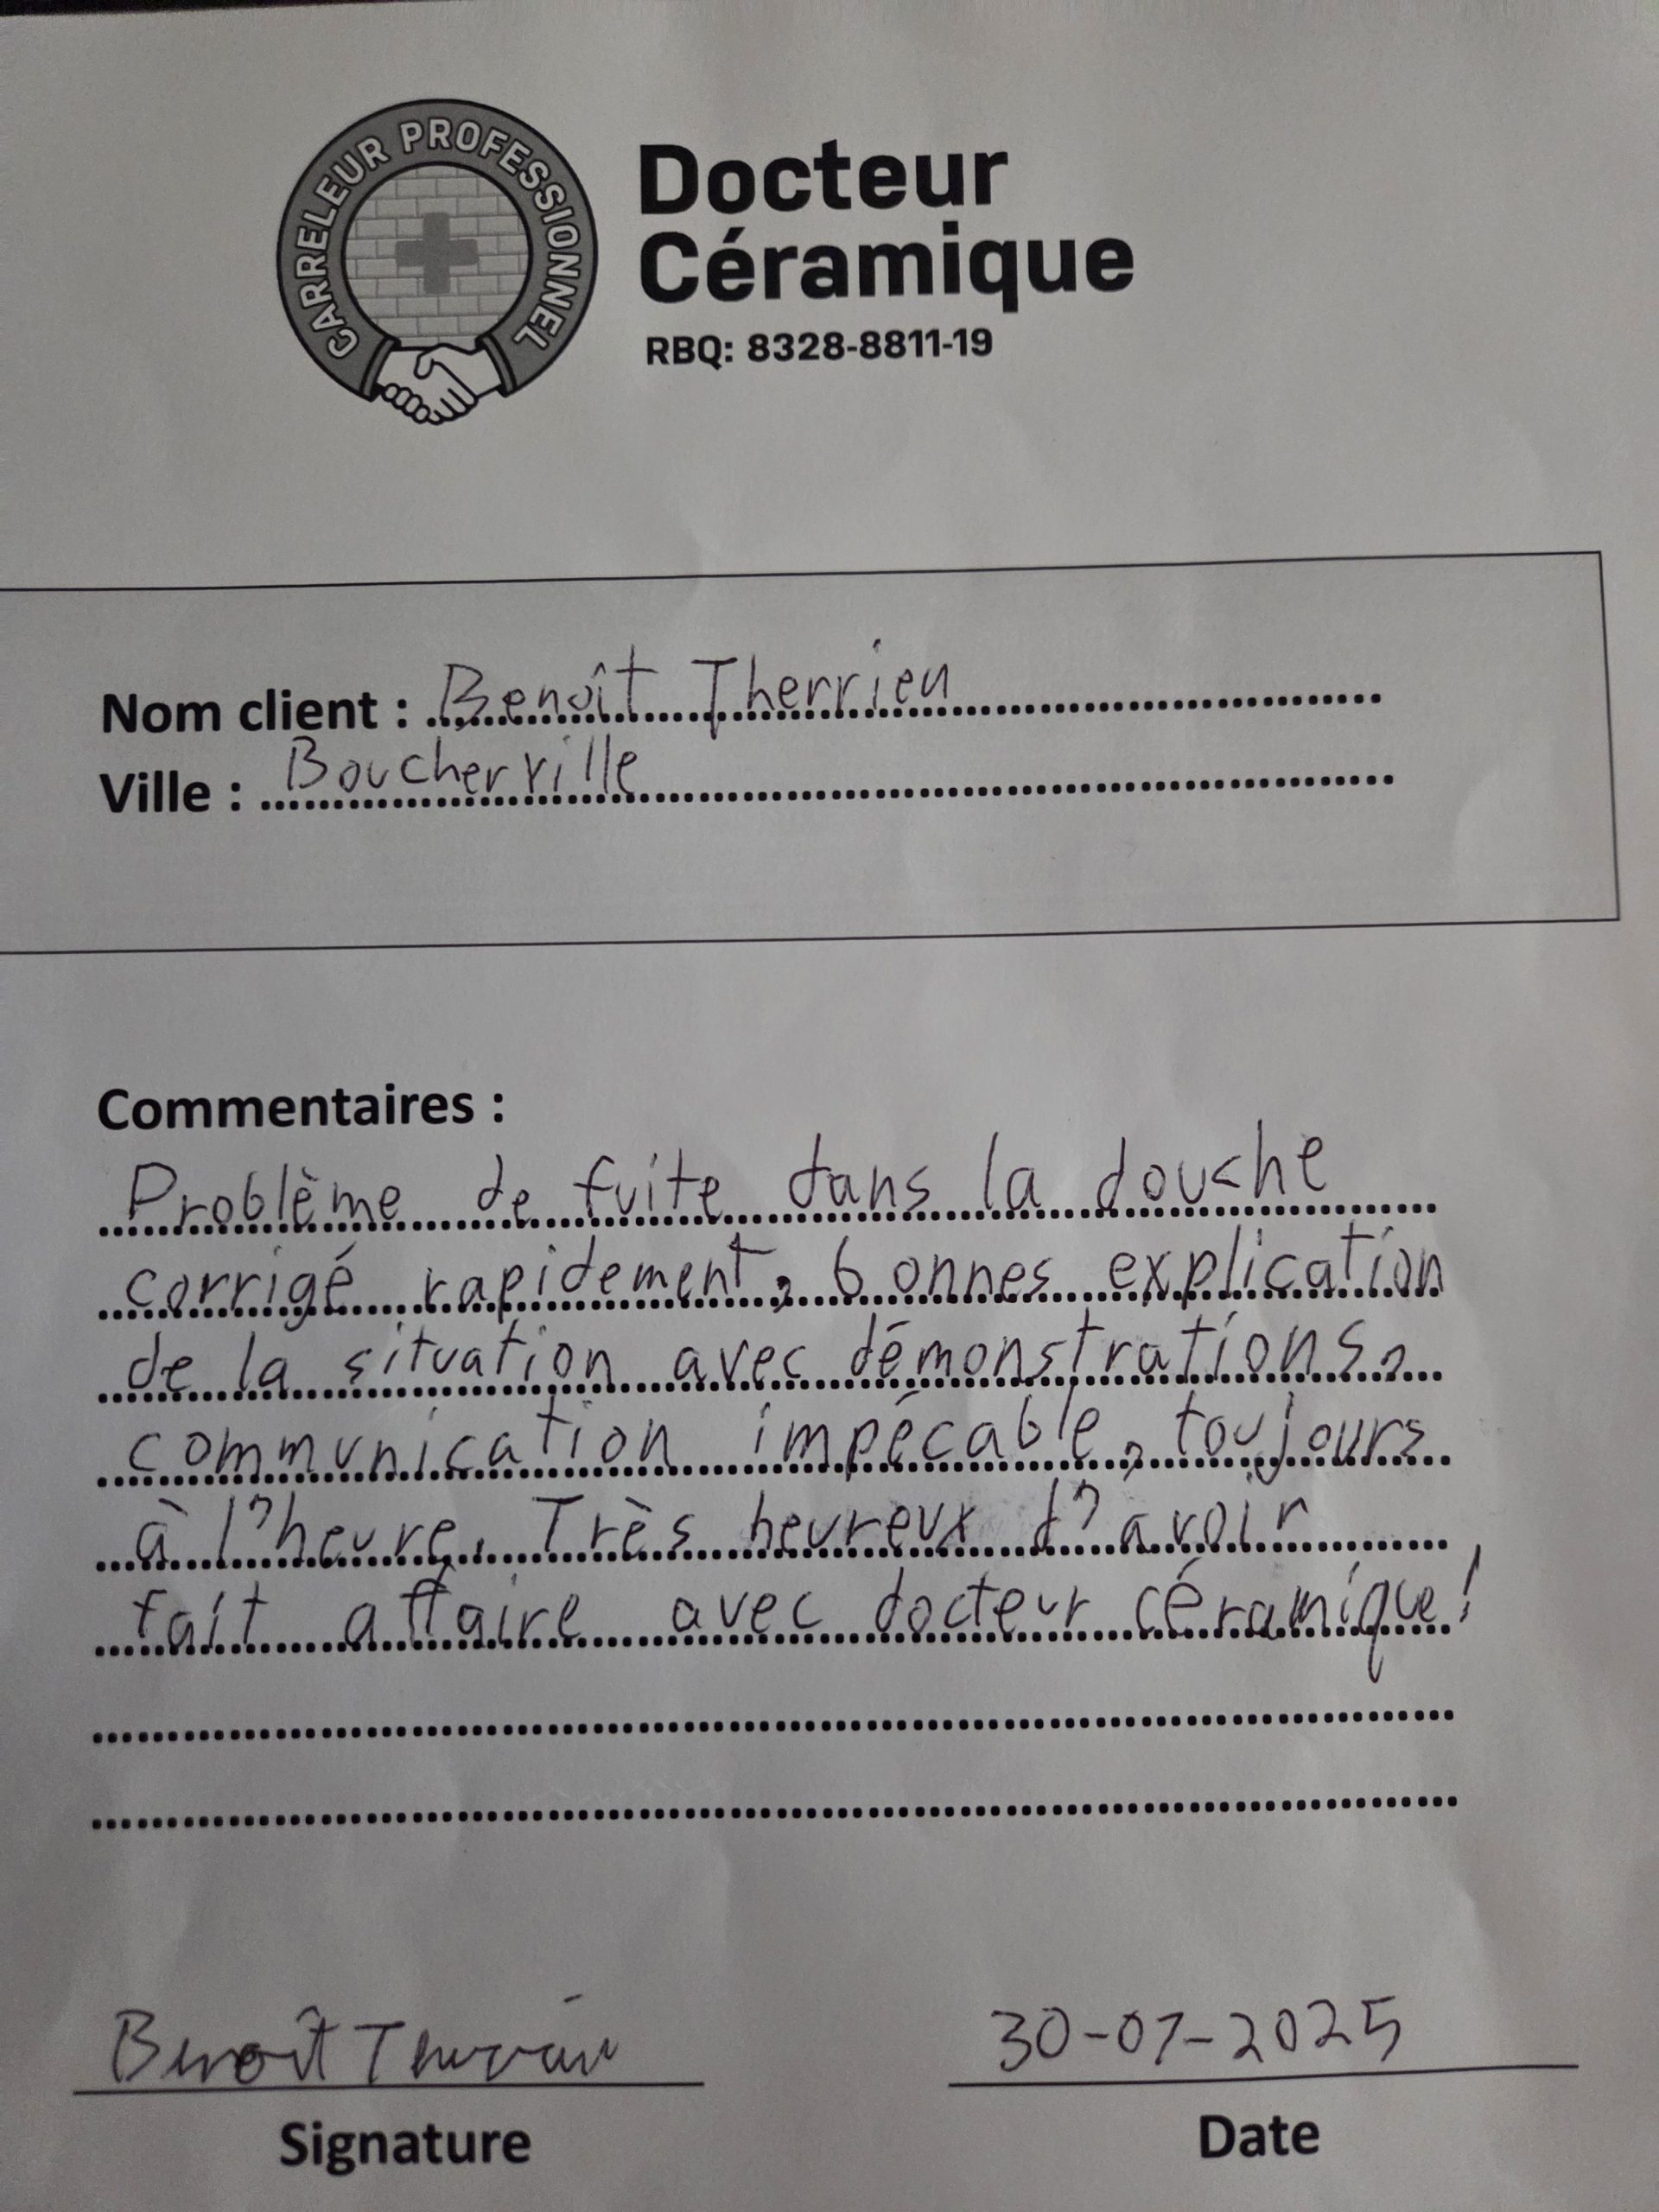 CARRELEUR PROFESSIONNEL
Docteur
Céramique
RBQ: 8328-8811-19
Nom client : Benoît Therrien
Ville : Boucherville
Commentaires :
Problème de fuite dans la douche
corrigé rapidement, bonnes explication
de la situation avec démonstrations,
communication impécable, toujours
à l'heure. Très heureux d'avoir
fait affaire avec docteur céramique!
Benoît Therrien 30-07-2025
Signature Date